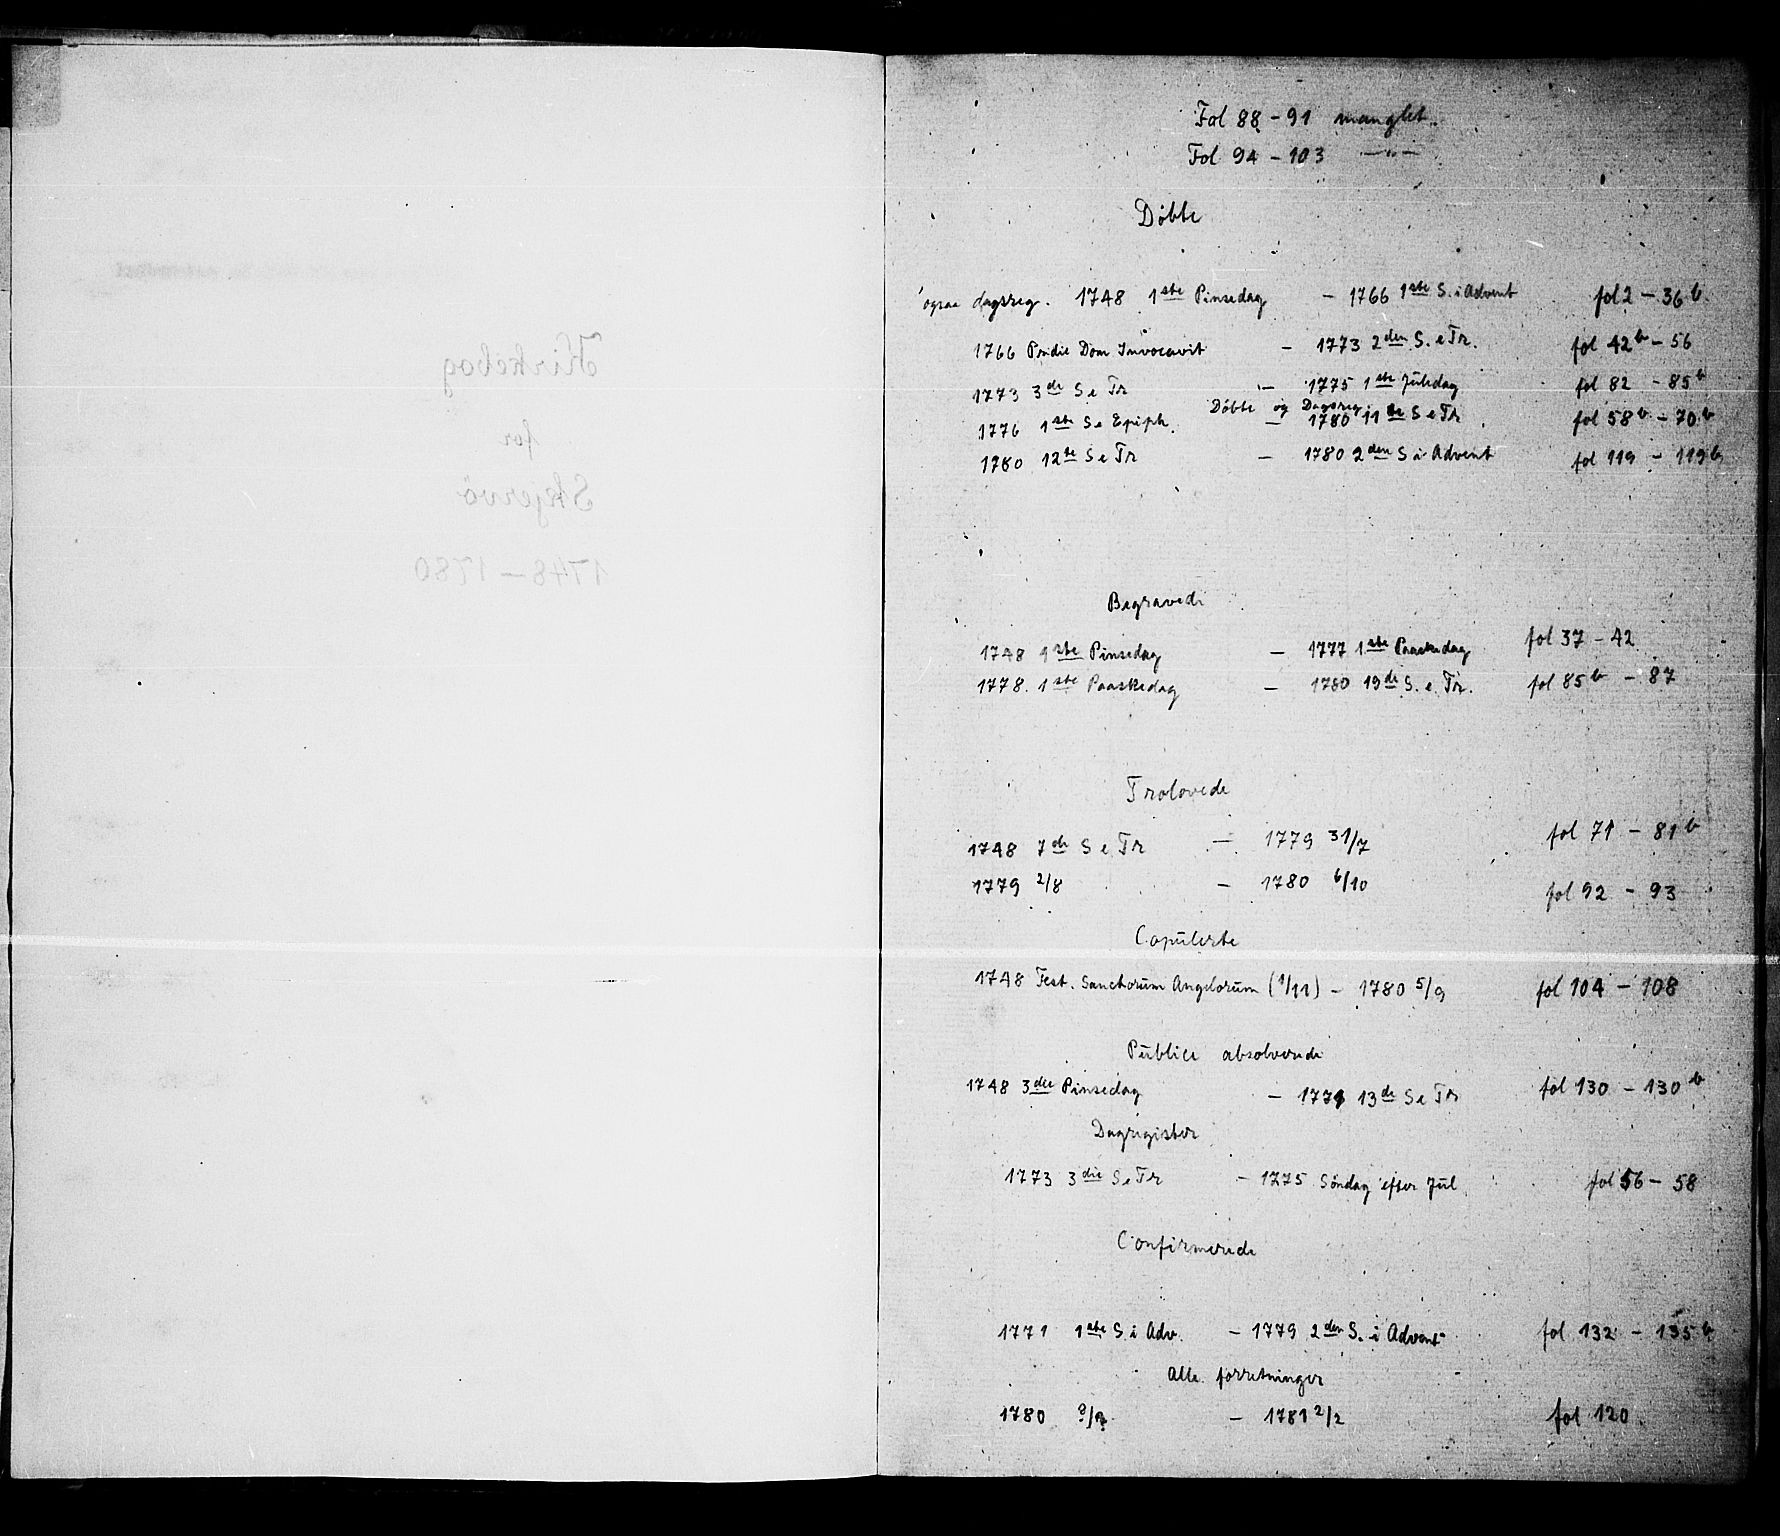 Kirkebog
for
Skjervö
1748-1780
Fol 88 - 91 manglet.
Fol 94 - 103 —"—
Døbte
ogsaa dagsreg. 1748 1ste Pinsedag - 1766 1ste S. i Advent fol 2 - 36b.
1766 Pridie Dom Invocavit - 1773 2den S. e Tr. fol 42b - 56
1773 3de S e Tr - 1775 1ste Juledag fol 82 - 85b
Døbte og Dagsreg.
1776 1ste S e Epiph. - 1780 11te S e Tr. fol 58b - 70b
1780 12te S e Tr - 1780 2den S i Advent fol 119 - 119b
Begravede
1748 1ste Pinsedag - 1777 1ste Paaskedag fol 37 - 42
1778. 1ste Paaskedag - 1780 19de S. e. Tr. fol 85b - 87
Trolovede
1748 7de S e Tr - 1779 31/7 fol 71 - 81b
1779 2/8 - 1780 6/10 fol 92 - 93
Copulerte
1748 Fest. Sanctorum Angelorum (1/11) - 1780 5/9 fol 104 - 108
Publice absolverede
1748 3die Pinsedag - 1771 13de S e Tr fol 130 - 130b
Dagregister
1773 3die S e Tr - 1775 Söndag efter Jul fol 56 - 58
Confirmerede
1771 1ste S i Adv. - 1779 2den S. i Advent fol 132 - 135b
Alle forretninger
1780 - 1781 2/2 fol 120